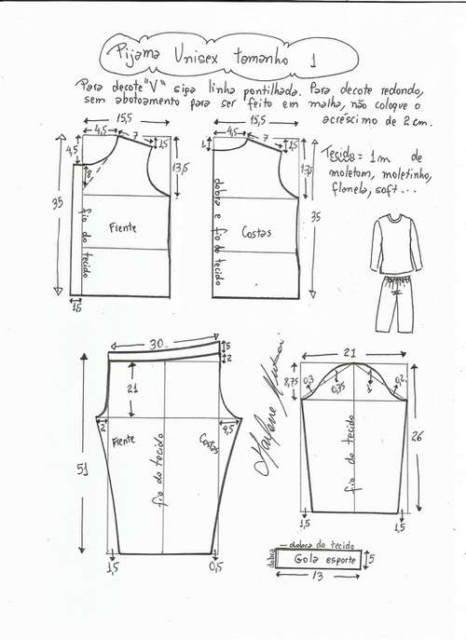 Pijama Unisex tamanho 1
Para decote "V" siga linha pontilhada. Para decote redondo,
sem abotoamento para ser feito em malha, não coloque o
acréscimo de 2 cm.
15,5
4,5 7 15
4,5
8
13,5
35
Frente
fio do tecido
15
15,5
4,5 7 15
1
13,5
35
Costas
dobra e fio do tecido
Tecido = 1m de
moletom, moletinho,
flanela, soft...
30
5
2
21
2
9,5
51
Frente
Costas
fio do tecido
1,5
0,5
Marlene Mukai
21
8,75
0,3
0,75
0,2
26
fio do tecido
1,5
1,5
dobra do tecido
dobra
Gola esporte
5
13